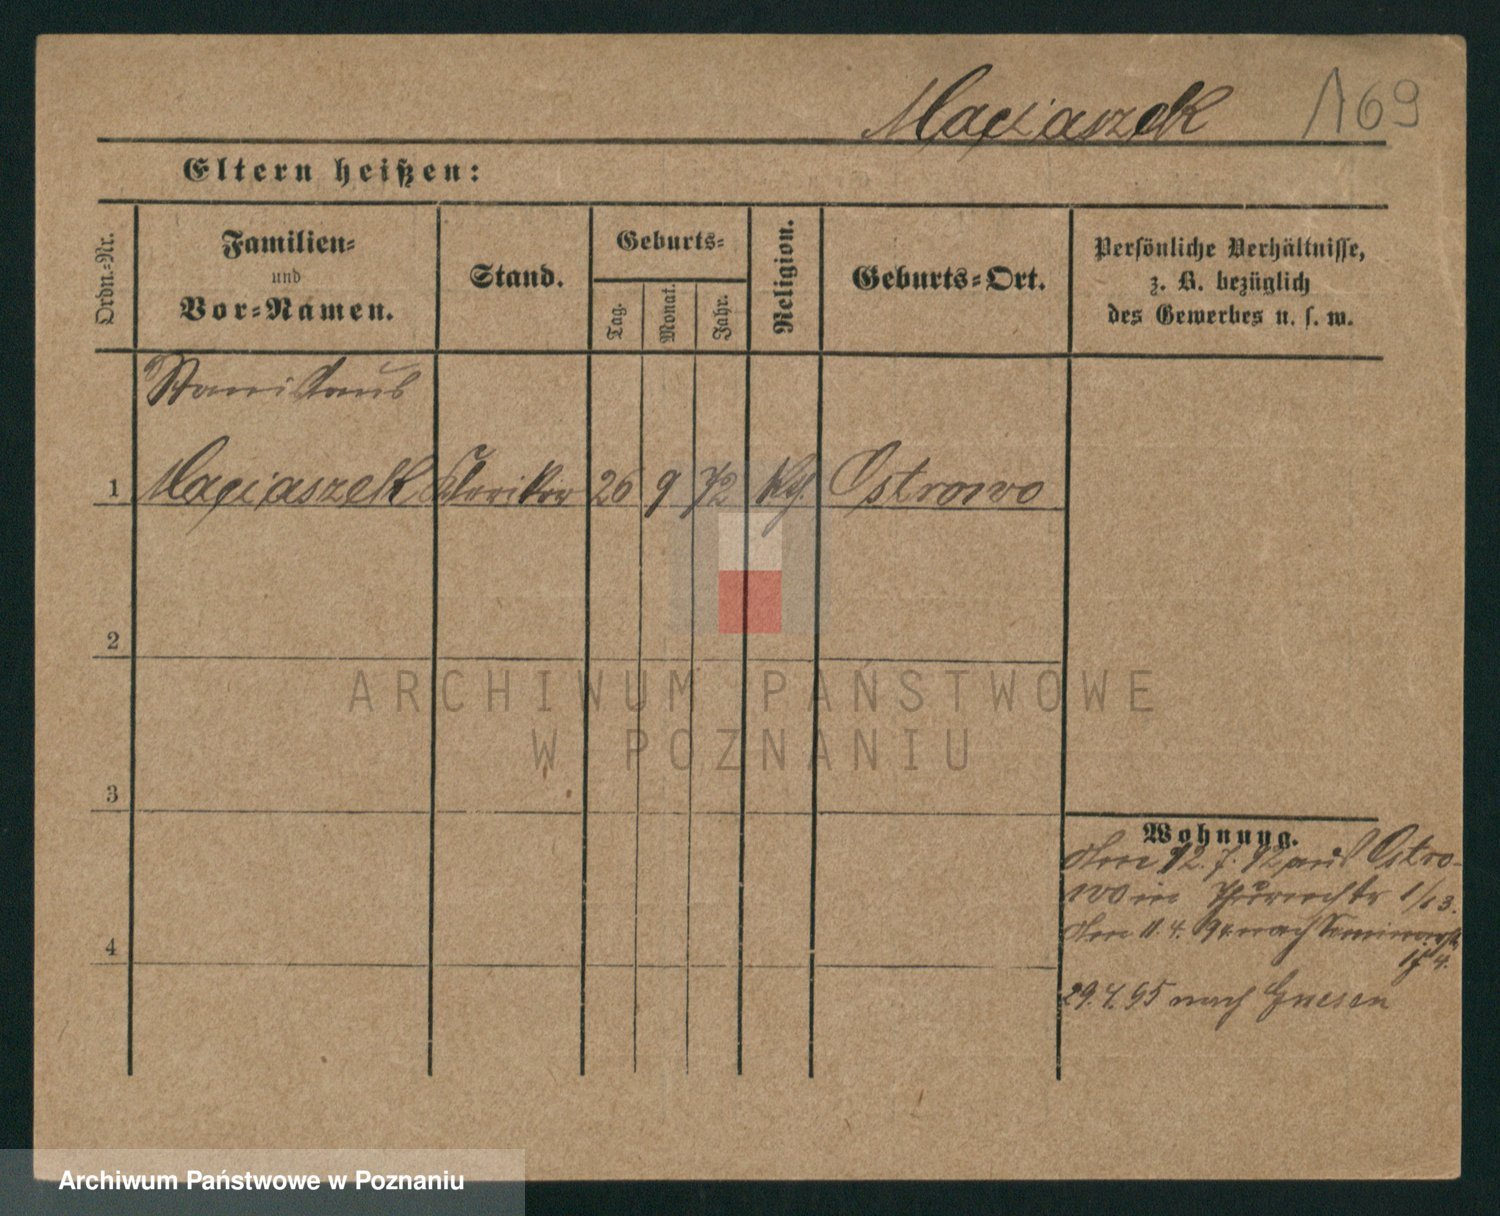 Maciaszek 169
Eltern heißen:
Ordn.-Nr.
Familien-
und
Vor-Namen.
Stand.
Geburts-
Tag.
Monat.
Jahr.
Religion.
Geburts-Ort.
Persönliche Verhältnisse,
z. B. bezüglich
des Gewerbes u. s. w.
Stanislaus
1 Maciaszek Kleriker 26 9 72 Kth. Ostrowo
2
3
4
Wohnung.
12. 7. 92 aus Ostro-
wo in 1/13.
11. 4. 94 nach Seminarstr
17 4.
29. 4. 95 nach Gnesen
ARCHIWUM PAŃSTWOWE
W POZNANIU
Archiwum Państwowe w Poznaniu